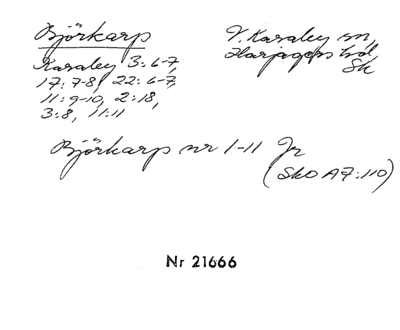 Björkarp
V. Karaby sn,
Harjagers hd,
Sk
Karaby 3:6-7,
17:7-8, 22:6-7,
11:9-10, 2:18,
3:8, 11:11
Björkarp nr 1-11 Jr
(SkO A7:110)
Nr 21666